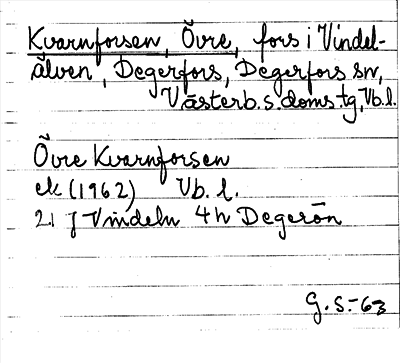 Kvarnforsen, Övre, fors i Vindel-
älven, Degerfors, Degerfors sn,
Västerb. s. doms. tg, Vb. l.
Övre Kvarnforsen
ek (1962) Vb. l.
21 J Vindeln 4 h Degerön
G. S. -63